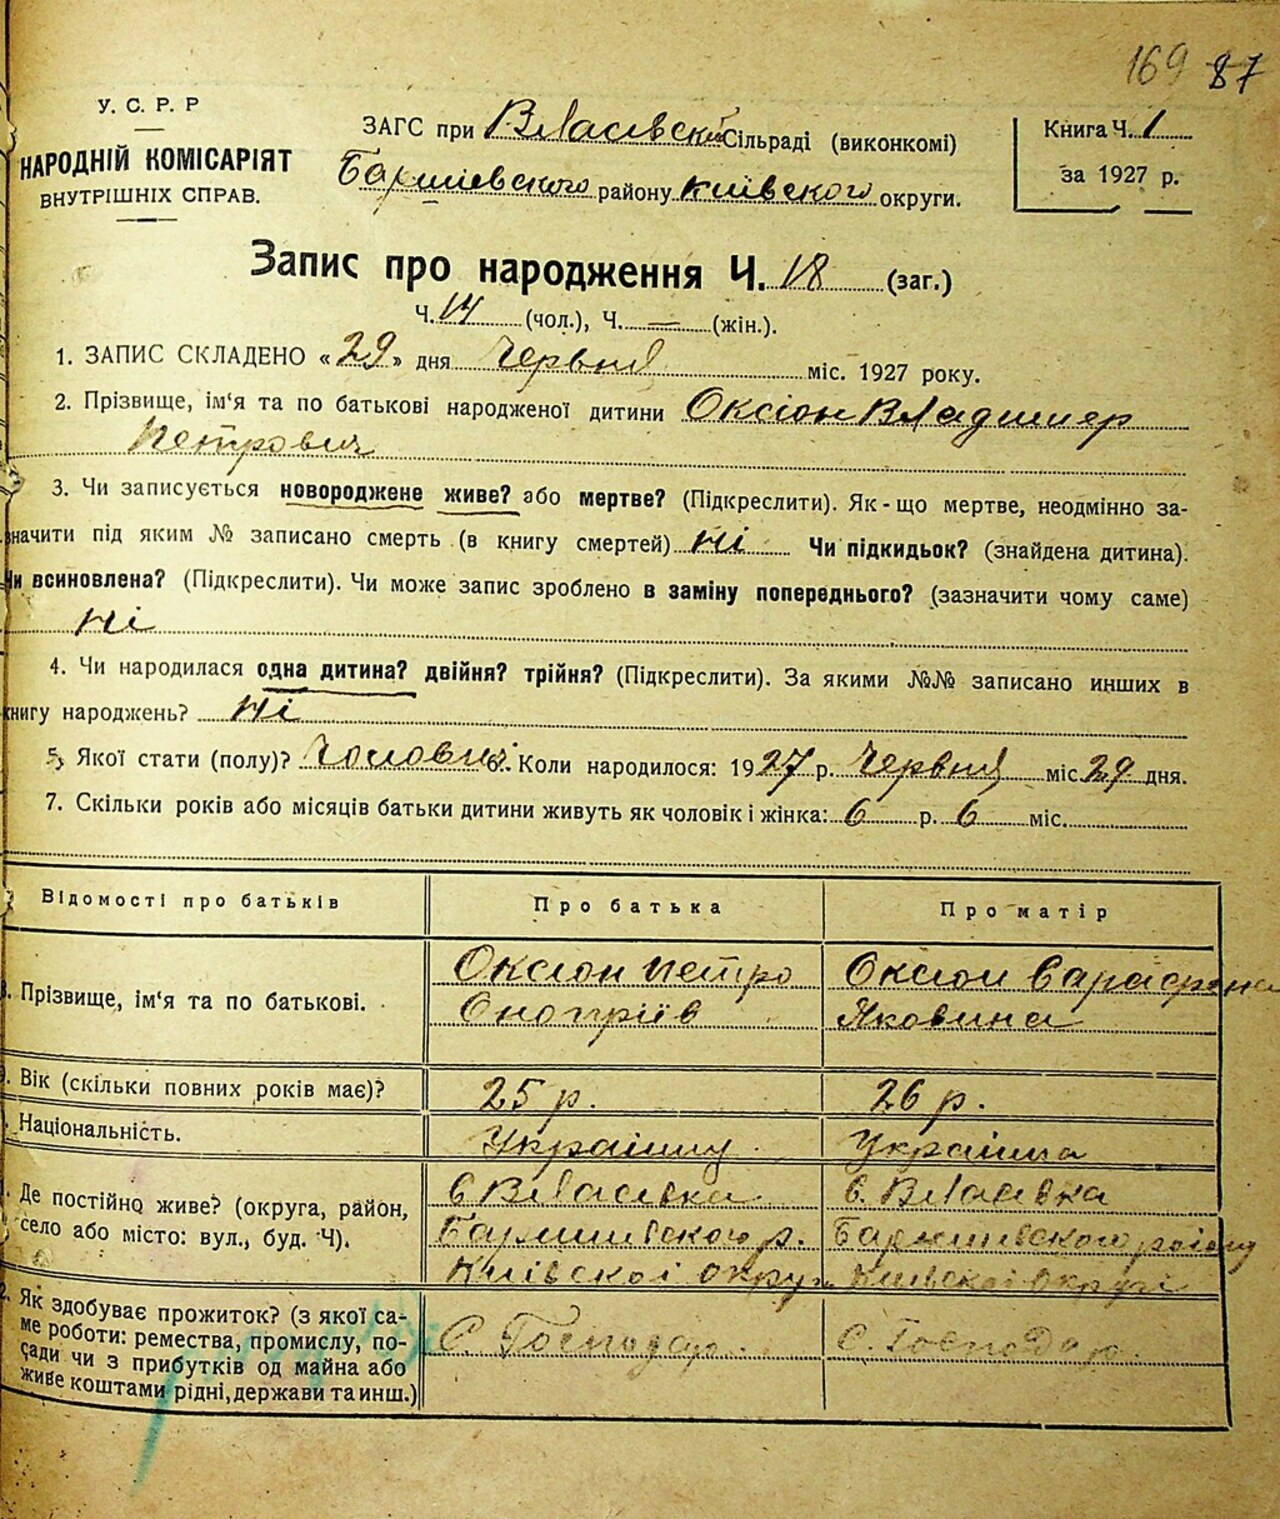 169 87
У. С. Р. Р
НАРОДНІЙ КОМІСАРІЯТ
ВНУТРІШНІХ СПРАВ.
ЗАГС при Власівскій Сільраді (виконкомі)
Баришевского району Київского округи.
Книга Ч. 1
за 1927 р.
Запис про народження Ч. 18 (заг.)
Ч. 14 (чол.), Ч. — (жін.).
1. ЗАПИС СКЛАДЕНО «29» дня Червня міс. 1927 року.
2. Прізвище, ім'я та по батькові народженої дитини Оксіон Владимер
Петрович
3. Чи записується новороджене живе? або мертве? (Підкреслити). Як-що мертве, неодмінно за-
значити під яким № записано смерть (в книгу смертей) Ні Чи підкидьок? (знайдена дитина).
Чи всиновлена? (Підкреслити). Чи може запис зроблено в заміну попереднього? (зазначити чому саме)
Ні
4. Чи народилася одна дитина? двійня? трійня? (Підкреслити). За якими №№ записано инших в
книгу народжень? Ні
5. Якої стати (полу)? Чоловічі 6. Коли народилося: 1927 р. Червня міс 29 дня.
7. Скільки років або місяців батьки дитини живуть як чоловік і жінка: 6 р. 6 міс.
Відомості про батьків Про батька Про матір
Прізвище, ім'я та по батькові. Оксіон Петро Оксіон Сарафена
Оноприїв Яковина
Вік (скільки повних років має)? 25 р. 26 р.
Національність. Україниц Українка
Де постійно живе? (округа, район, с Власівка с. Власівка
село або місто: вул., буд. Ч). Баришивского р. Баришивского району
Київскої округи Київскої округі
Як здобуває прожиток? (з якої са-
ме роботи: ремества, промислу, по- С. Господар. С. Господар.
сади чи з прибутків од майна або
живе коштами рідні, держави та инш.)